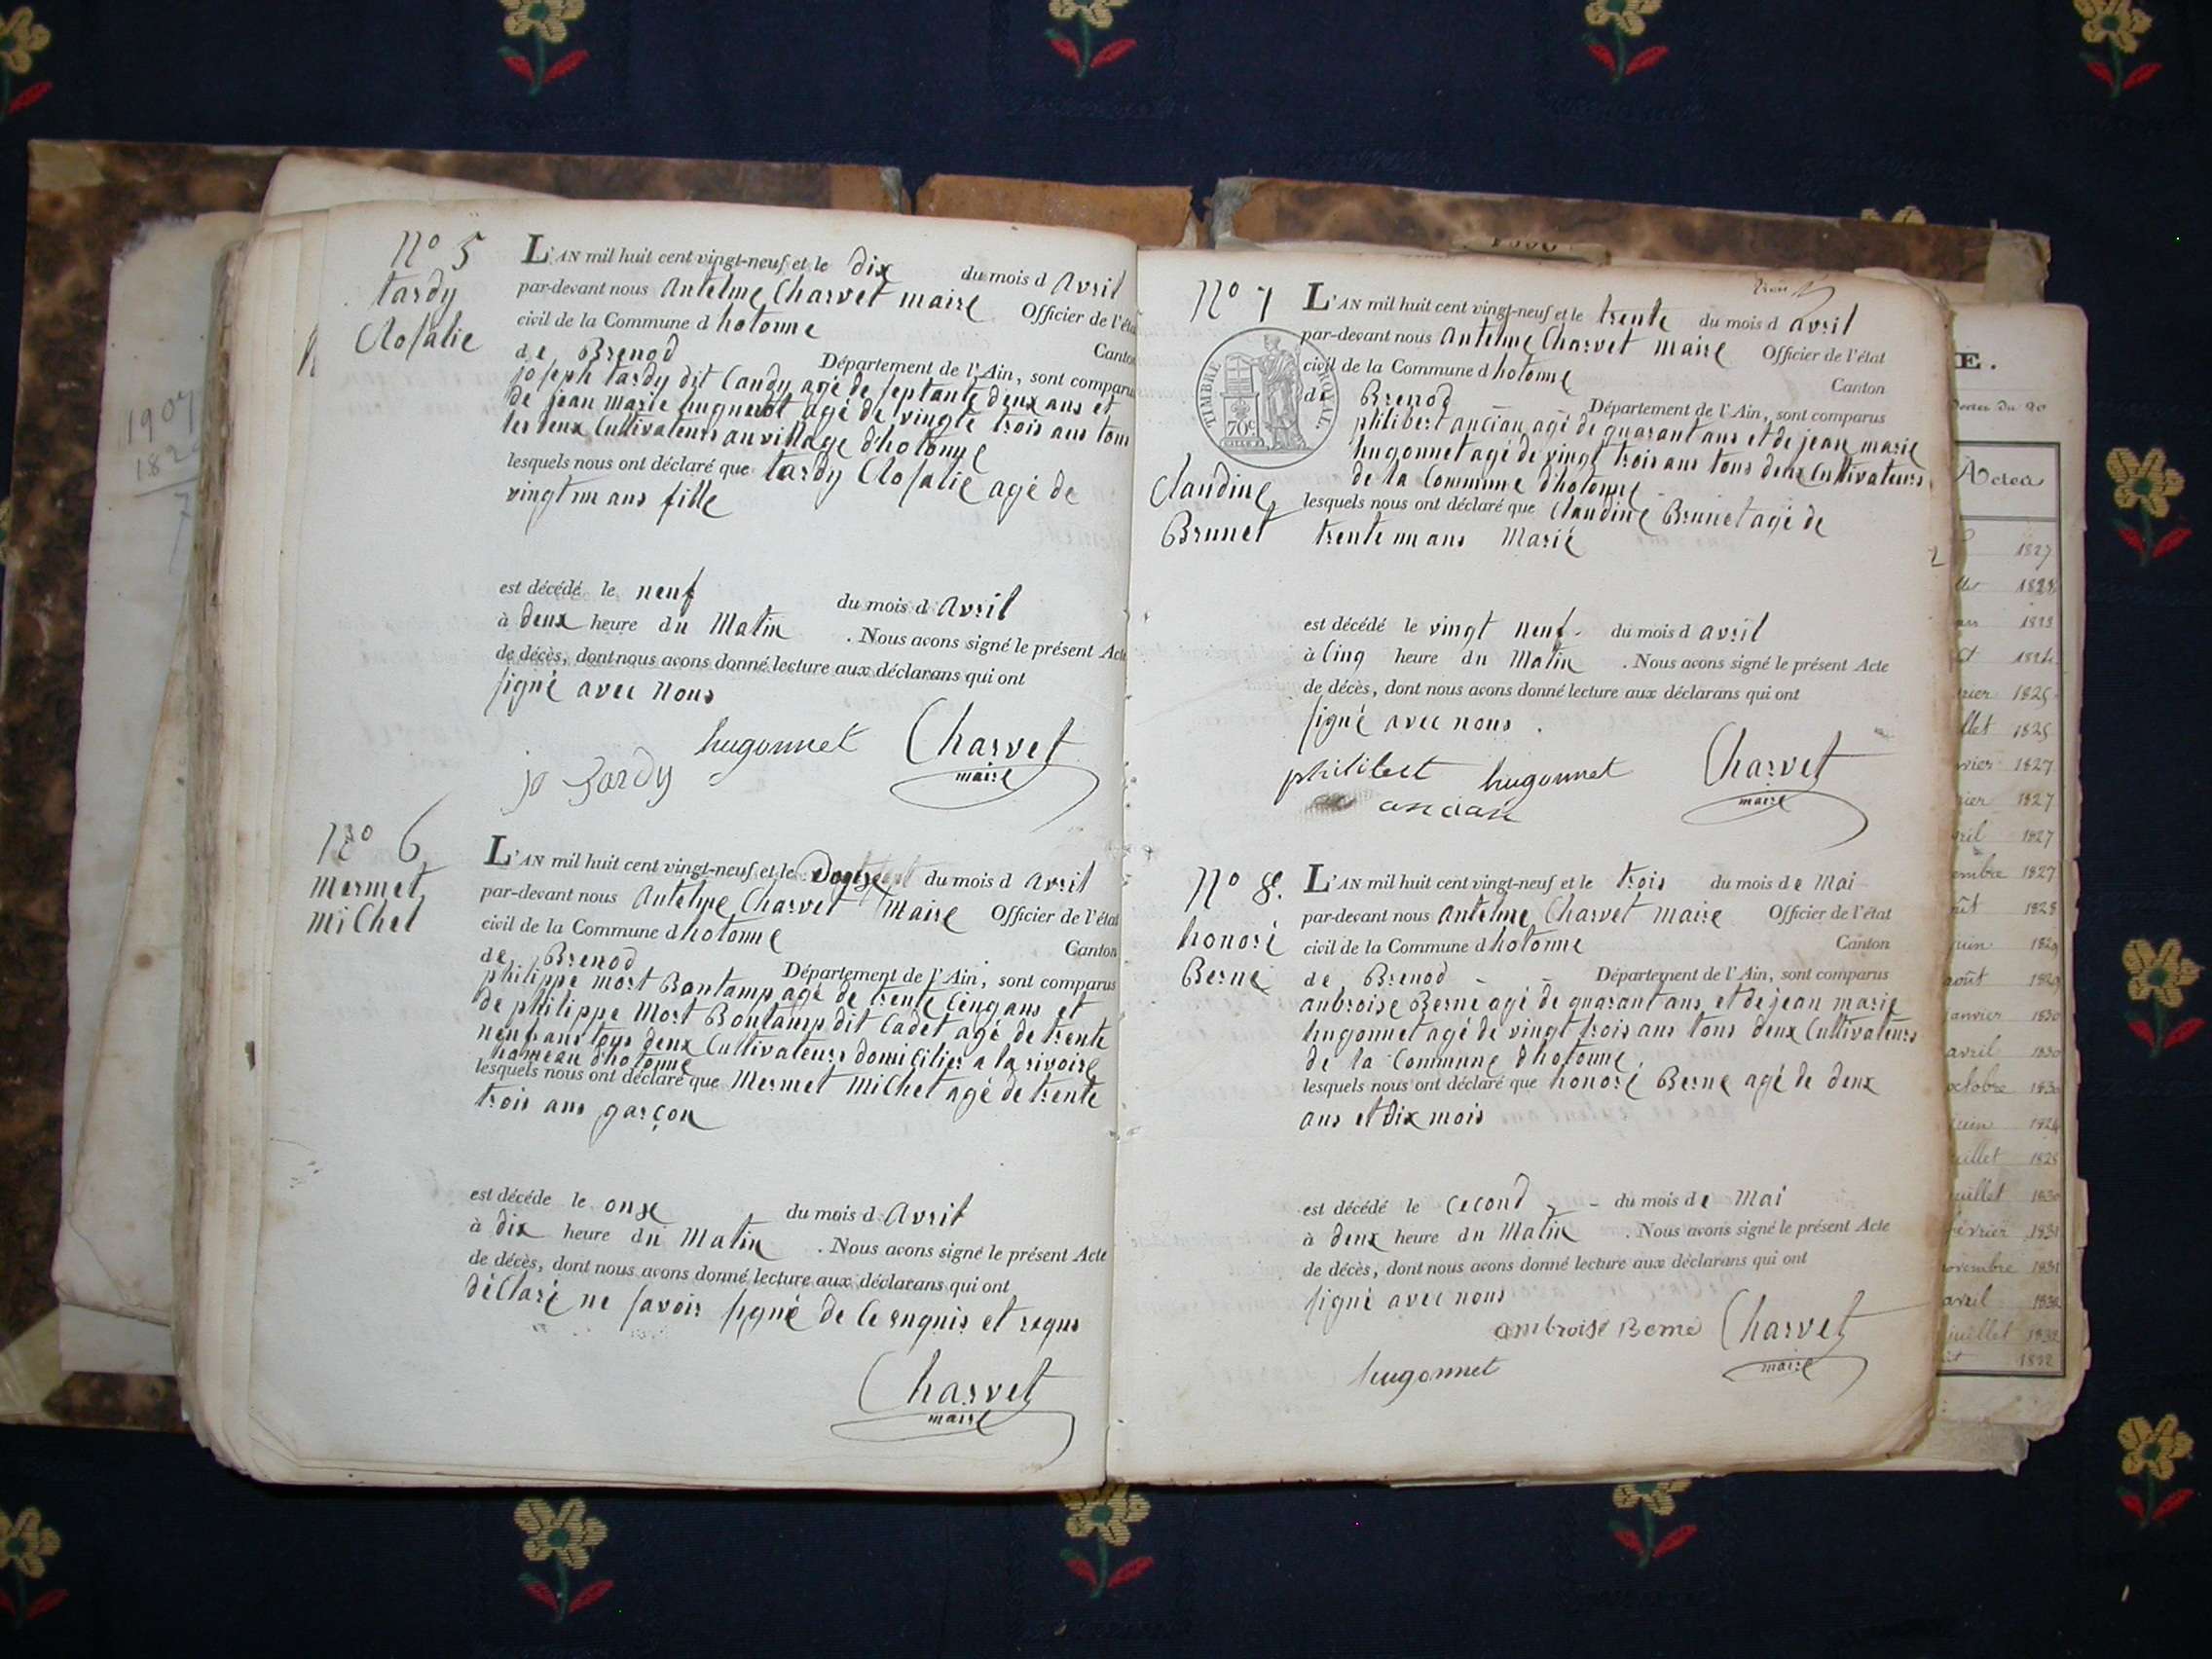 1907
182
7
n° 5
tardy
Rosalie
L'AN mil huit cent vingt-neuf et le dix du mois d avril
par-devant nous antelme Charvet maire Officier de l'état
civil de la Commune d hotonne Canton
de Brenod Département de l'Ain, sont comparus
joseph tardy dit Candy agé de septante deux ans et
de jean marie hugonnet agé de vingte trois ans tous
les deux Cultivateurs au village d'hotonne
lesquels nous ont déclaré que tardy Rosalie agé de
vingt un ans fille
est décédé le neuf du mois d avril
à deux heure du Matin . Nous avons signé le présent Acte
de décès, dont nous avons donné lecture aux déclarans qui ont
signé avec nous
hugonnet Charvet
jo tardy maire
n° 6
mermet
michel
L'AN mil huit cent vingt-neuf et le du mois d avril
par-devant nous antelme Charvet maire Officier de l'état
civil de la Commune d hotonne Canton
de Brenod Département de l'Ain, sont comparus
philippe mort Bontamp agé de trente Cinq ans et
de philippe Mort Bontamp dit Cadet agé de trente
neuf ans tous deux Cultivateurs domicilier a la rivoire
hameau d'hotonne
lesquels nous ont déclaré que Mermet michel agé de trente
trois ans garçon
est décédé le onze du mois d avril
à dix heure du Matin . Nous avons signé le présent Acte
de décès, dont nous avons donné lecture aux déclarans qui ont
déclaré ne savoir signé de Ce enquis et requs
Charvet
maire
n° 7
TIMBRE ROYAL
70c
Claudine
Brunet
L'AN mil huit cent vingt-neuf et le trente du mois d avril
par-devant nous antelme Charvet maire Officier de l'état
civil de la Commune d hotonne Canton
de Brenod Département de l'Ain, sont comparus
philibert ancian agé de quarant ans et de jean marie
hugonnet agé de vingt trois ans tous deux Cultivateurs
de la Commune d'hotonne
lesquels nous ont déclaré que Claudine Brunet agé de
trente un ans Marié
est décédé le vingt neuf du mois d avril
à Cinq heure du Matin . Nous avons signé le présent Acte
de décès, dont nous avons donné lecture aux déclarans qui ont
signé avec nous .
philibert hugonnet Charvet
ancian maire
n° 8.
honoré
Berne
L'AN mil huit cent vingt-neuf et le trois du mois de Mai
par-devant nous antelme Charvet maire Officier de l'état
civil de la Commune d hotonne Canton
de Brenod Département de l'Ain, sont comparus
anbroise Berne agé de quarant ans, et de jean marie
hugonnet agé de vingt trois ans tous deux Cultivateurs
de la Commune d'hotonne
lesquels nous ont déclaré que honoré Berne agé de deux
ans et dix mois
est décédé le cecond du mois de Mai
à deux heure du Matin . Nous avons signé le présent Acte
de décès, dont nous avons donné lecture aux déclarans qui ont
signé avec nous
ambroise Berne Charvet
hugonnet maire
E.
du 20
Actes
1827
1828
1823
1824
1825
llet 1825
vrier 1827
rier 1827
ril 1827
embre 1827
oût 1828
juin 1829
août 1829
janvier 1830
avril 1830
octobre 1830
juin 1824
juillet 1825
juillet 1830
février 1831
novembre 1831
avril 1832
juillet 1832
1832